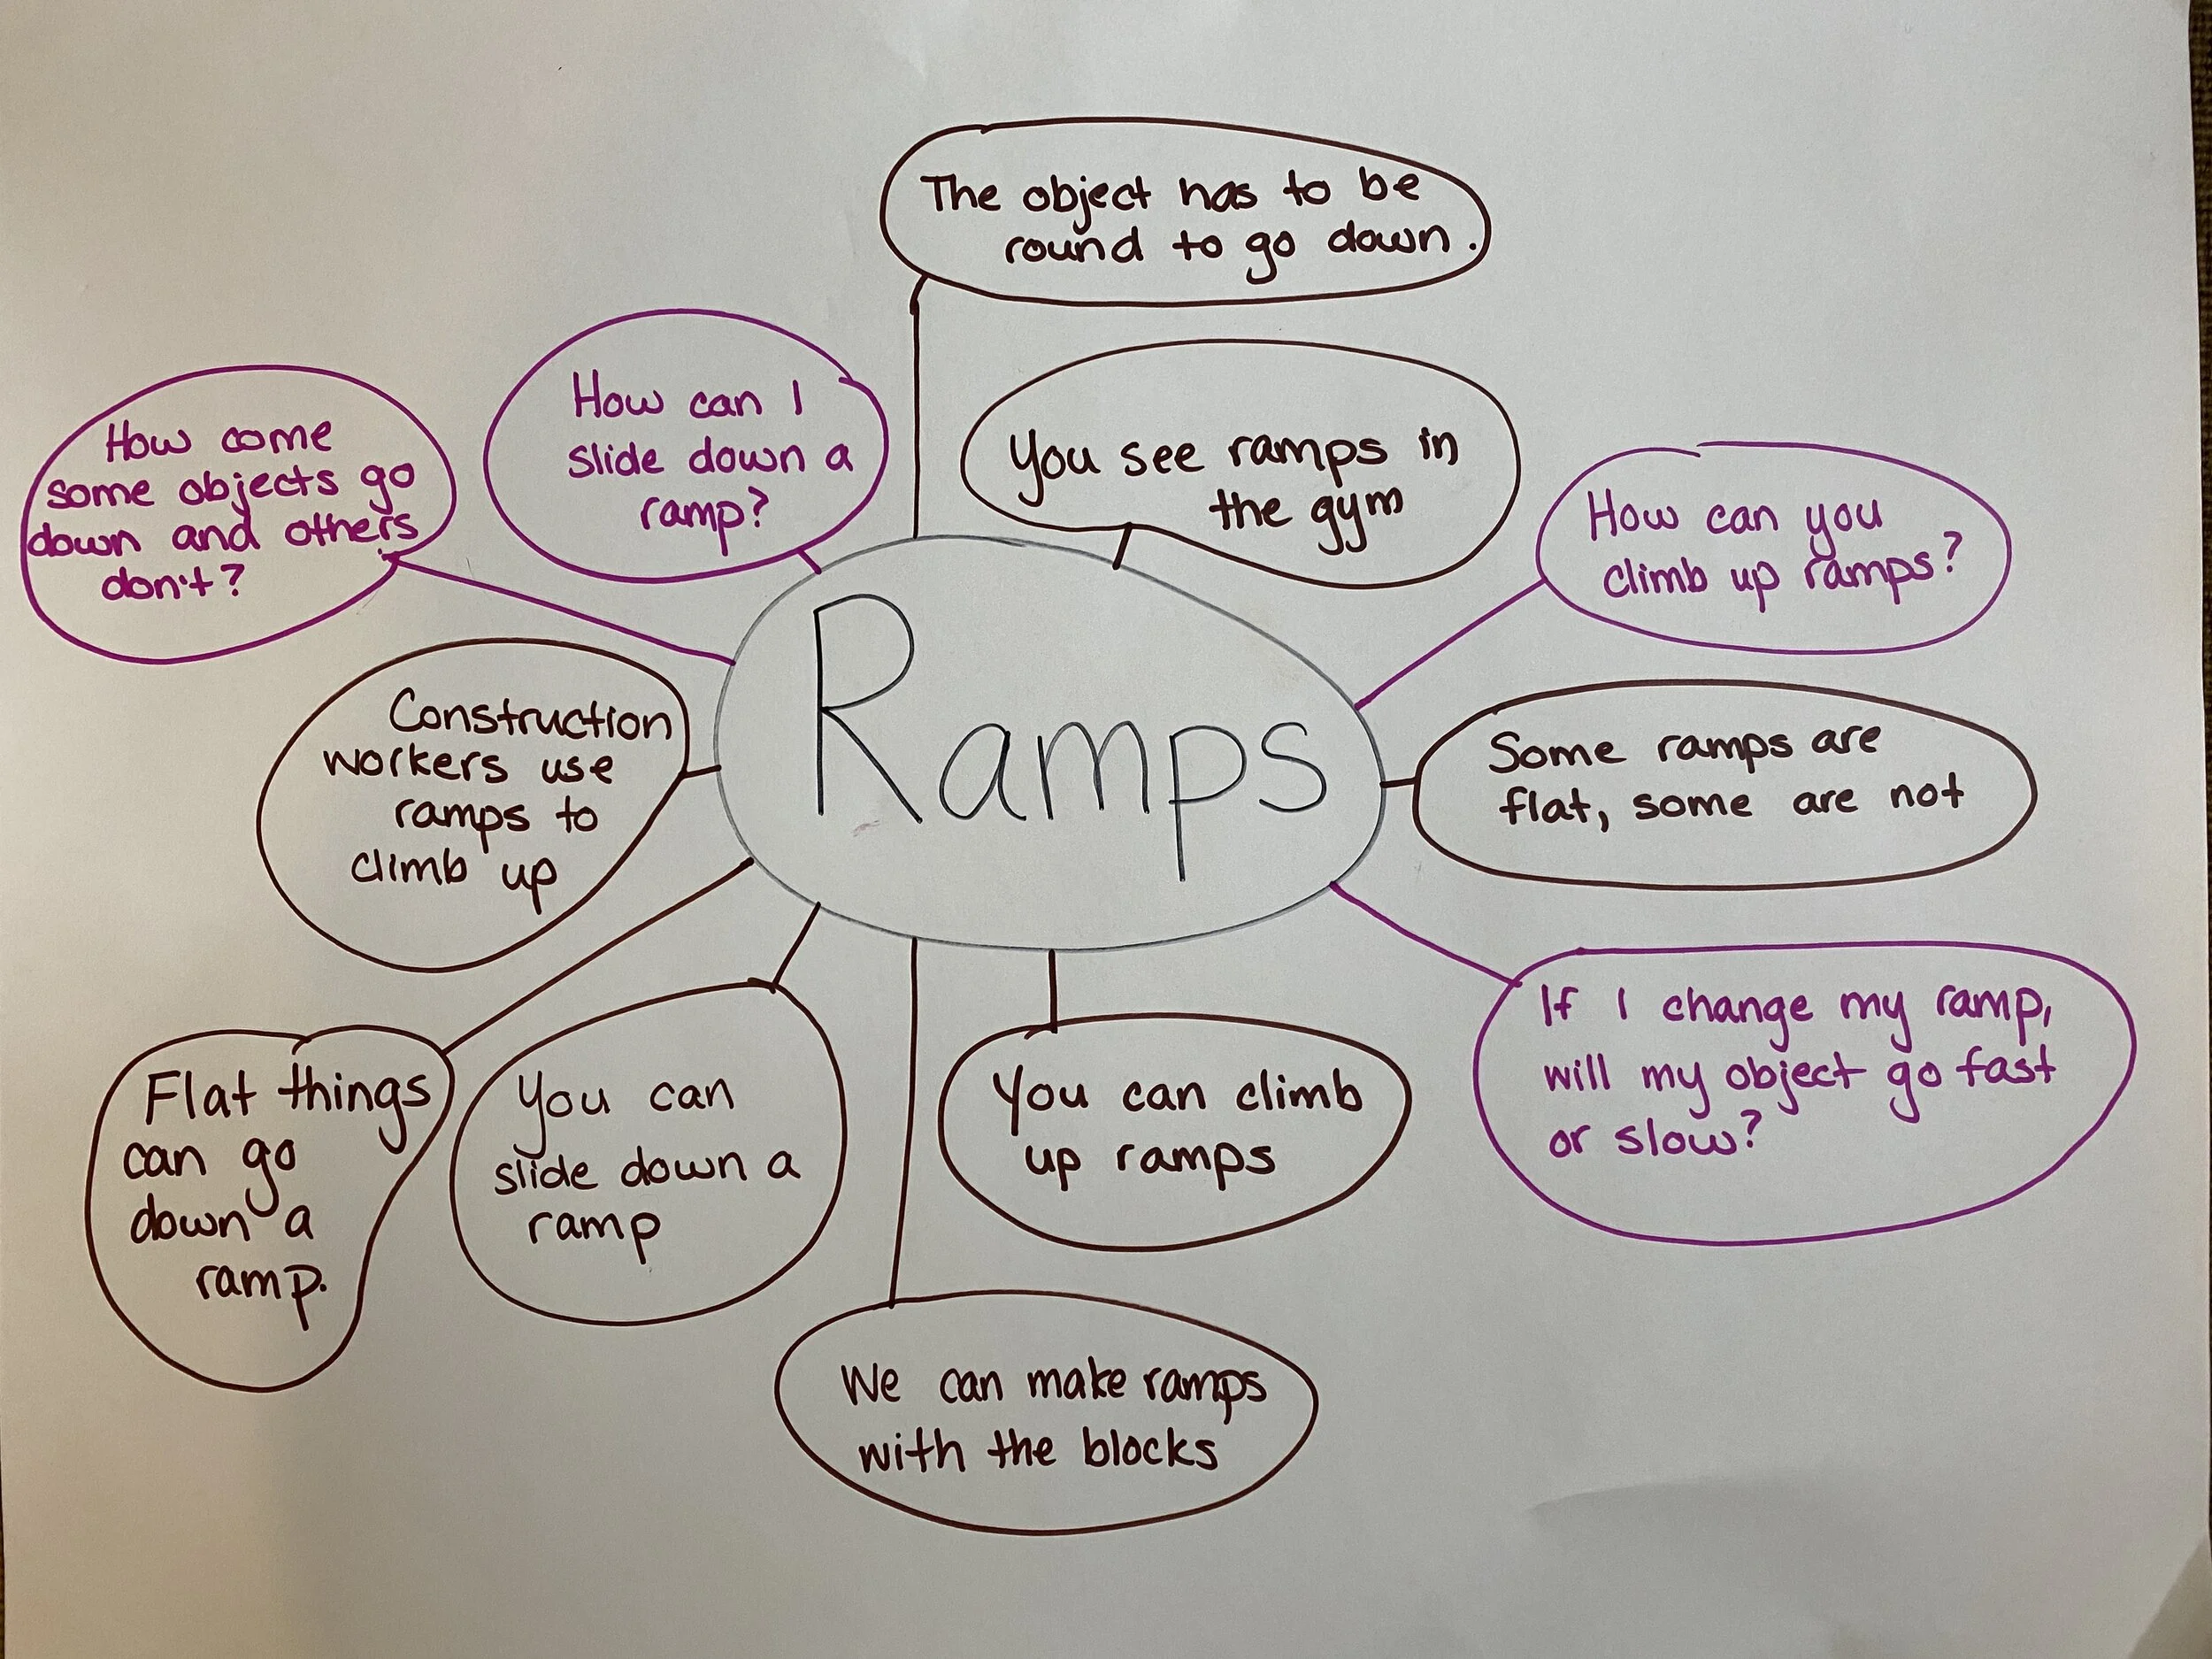 The object has to be
round to go down.
How can I
slide down a
ramp?
You see ramps in
the gym
How come
some objects go
down and others
don't?
How can you
climb up ramps?
Ramps
Construction
workers use
ramps to
climb up
Some ramps are
flat, some are not
If I change my ramp,
will my object go fast
or slow?
Flat things
can go
down a
ramp.
You can
slide down a
ramp
You can climb
up ramps
We can make ramps
with the blocks